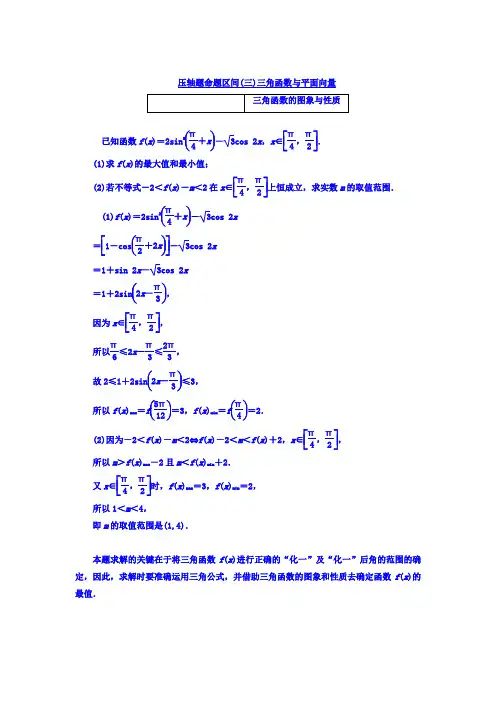 压轴题命题区间(三)三角函数与平面向量
三角函数的图象与性质
已知函数f(x)=2sin²(π/4+x)-√3cos 2x，x∈[π/4，π/2].
(1)求f(x)的最大值和最小值；
(2)若不等式-2<f(x)-m<2在x∈[π/4，π/2]上恒成立，求实数m的取值范围.
(1)f(x)=2sin²(π/4+x)-√3cos 2x
=[1-cos(π/2+2x)]-√3cos 2x
=1+sin 2x-√3cos 2x
=1+2sin(2x-π/3)，
因为x∈[π/4，π/2]，
所以π/6≤2x-π/3≤2π/3，
故2≤1+2sin(2x-π/3)≤3，
所以f(x)max=f(5π/12)=3，f(x)min=f(π/4)=2.
(2)因为-2<f(x)-m<2⇔f(x)-2<m<f(x)+2，x∈[π/4，π/2]，
所以m>f(x)max-2且m<f(x)min+2.
又x∈[π/4，π/2]时，f(x)max=3，f(x)min=2，
所以1<m<4，
即m的取值范围是(1,4).
本题求解的关键在于将三角函数f(x)进行正确的“化一”及“化一”后角的范围的确
定，因此，求解时要准确运用三角公式，并借助三角函数的图象和性质去确定函数f(x)的
最值.